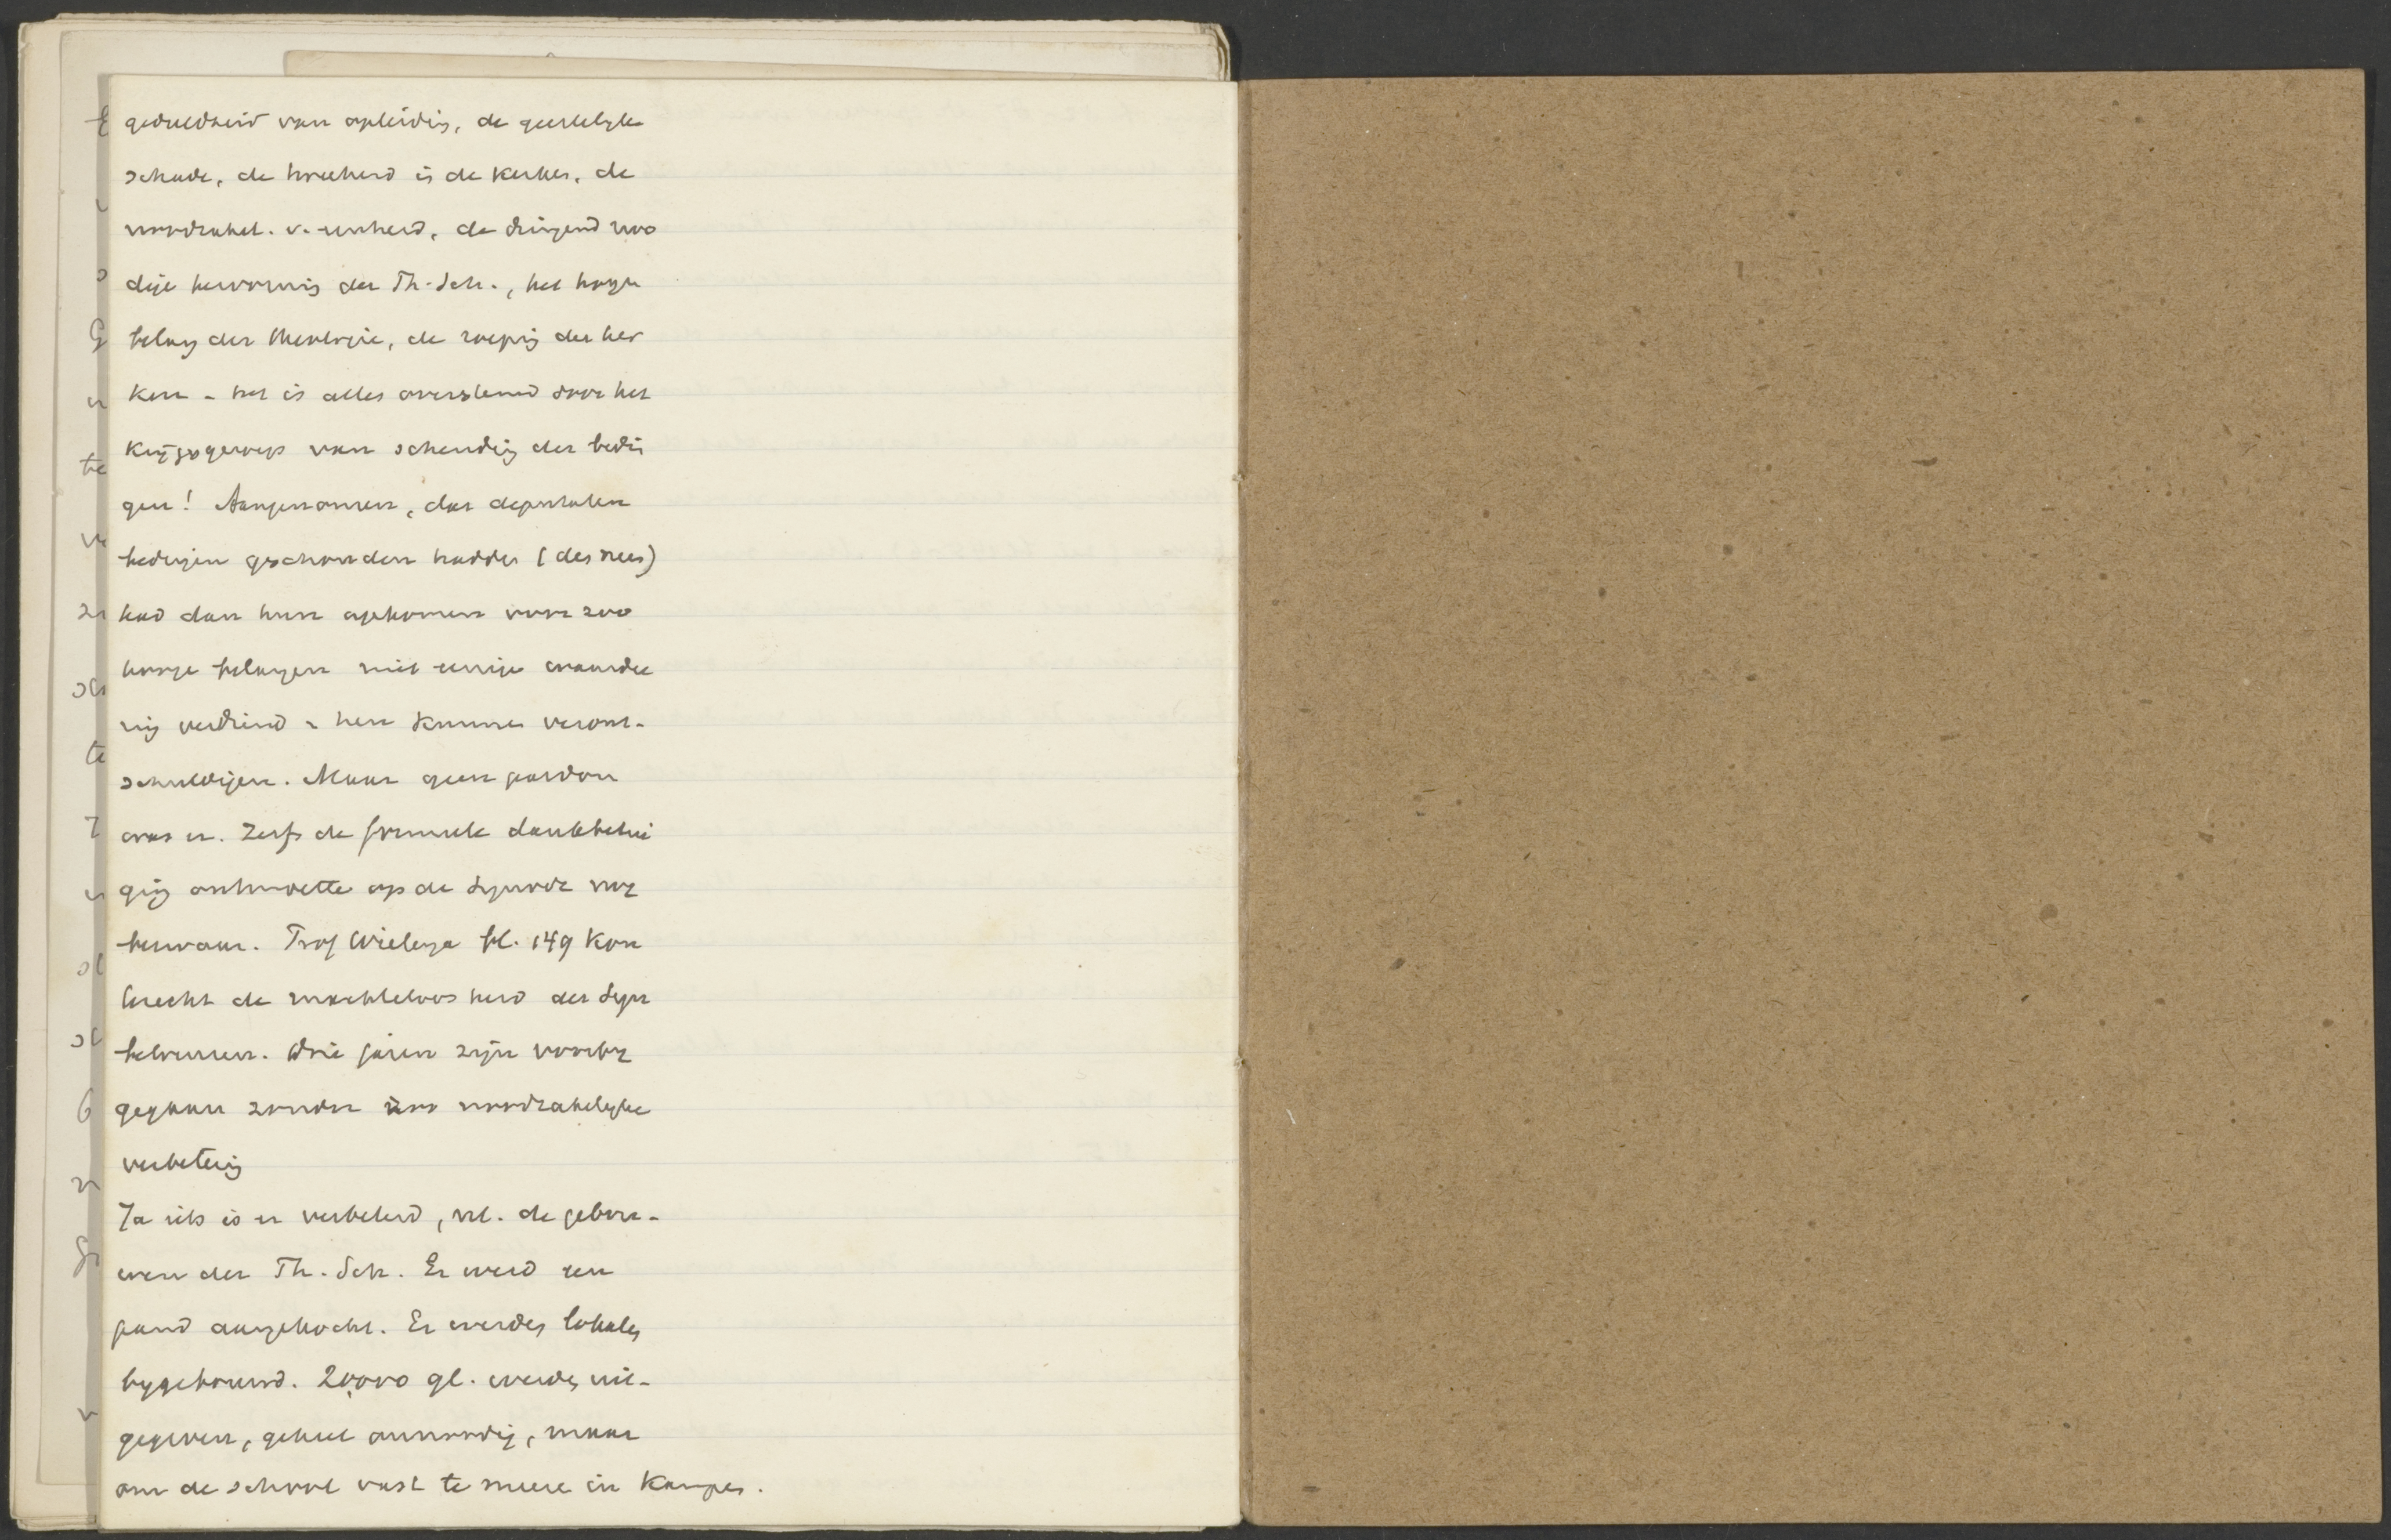 gedeeldheid van opleiding, de geestelyke
schade, de tweeheid in de kerken, de
noodzakel. v. eenheid, de dringend noo
dige hervorming der Th. Sch., het hooge
belang der theologie, de roeping der ker
ken - het is alles overstemd door het
krijgsgeroep van schending der bedin
gen! Aangenomen, dat deputaten
bedingen geschonden hadden (des neen)
had dan hun opkomen voor zoo
hooge belangen niet eenige waardee
ring verdiend en hen kunnen veront-
schuldigen. Maar geen pardon
was er. Zelfs de formule dankbetui
ging ontmoette op de Synode nog
bezwaar. Prof Wielenga bl. 149 kon
terecht de machteloosheid der Syn
betreuren. Drie jaren zijn voorby
gegaan zonder noodzakelyke
verbetering
Ja iets is er verbeterd, nl. de gebou-
wen der Th. Sch. Er werd een
pand aangekocht. Er werden lokalen
bygebouwd. 20,000 gl. werden uit-
gegeven, geheel onnoodig, maar
om de school vast te meere in Kampen.